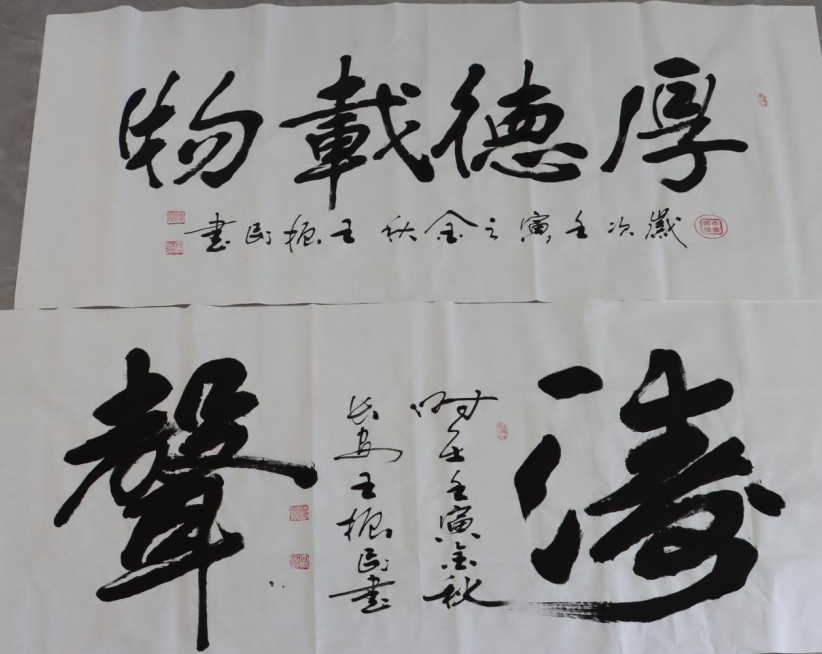 厚德載物
歲次壬寅之金秋王振民書
濤聲
時在壬寅金秋
長安王振民書